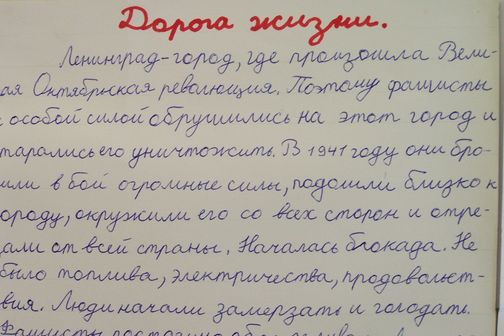 Дорога жизни.
Ленинград-город, где произошла Вели-
ая Октябрьская революция. Поэтому фашисты
с особой силой обрушились на этот город и
тарались его уничтожить. В 1941 году они бро-
или в бой огромные силы, подошли близко к
ороду, окружили его со всех сторон и отре-
али от всей страны. Началась блокада. Не
было топлива, электричества, продовольст-
вия. Люди начали замерзать и голодать.
Фашисты